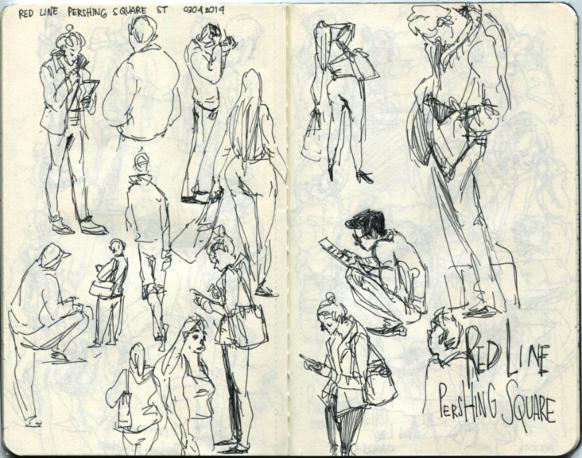 RED LINE PERSHING SQUARE ST 03042019
RED LINE
PERSHING SQUARE